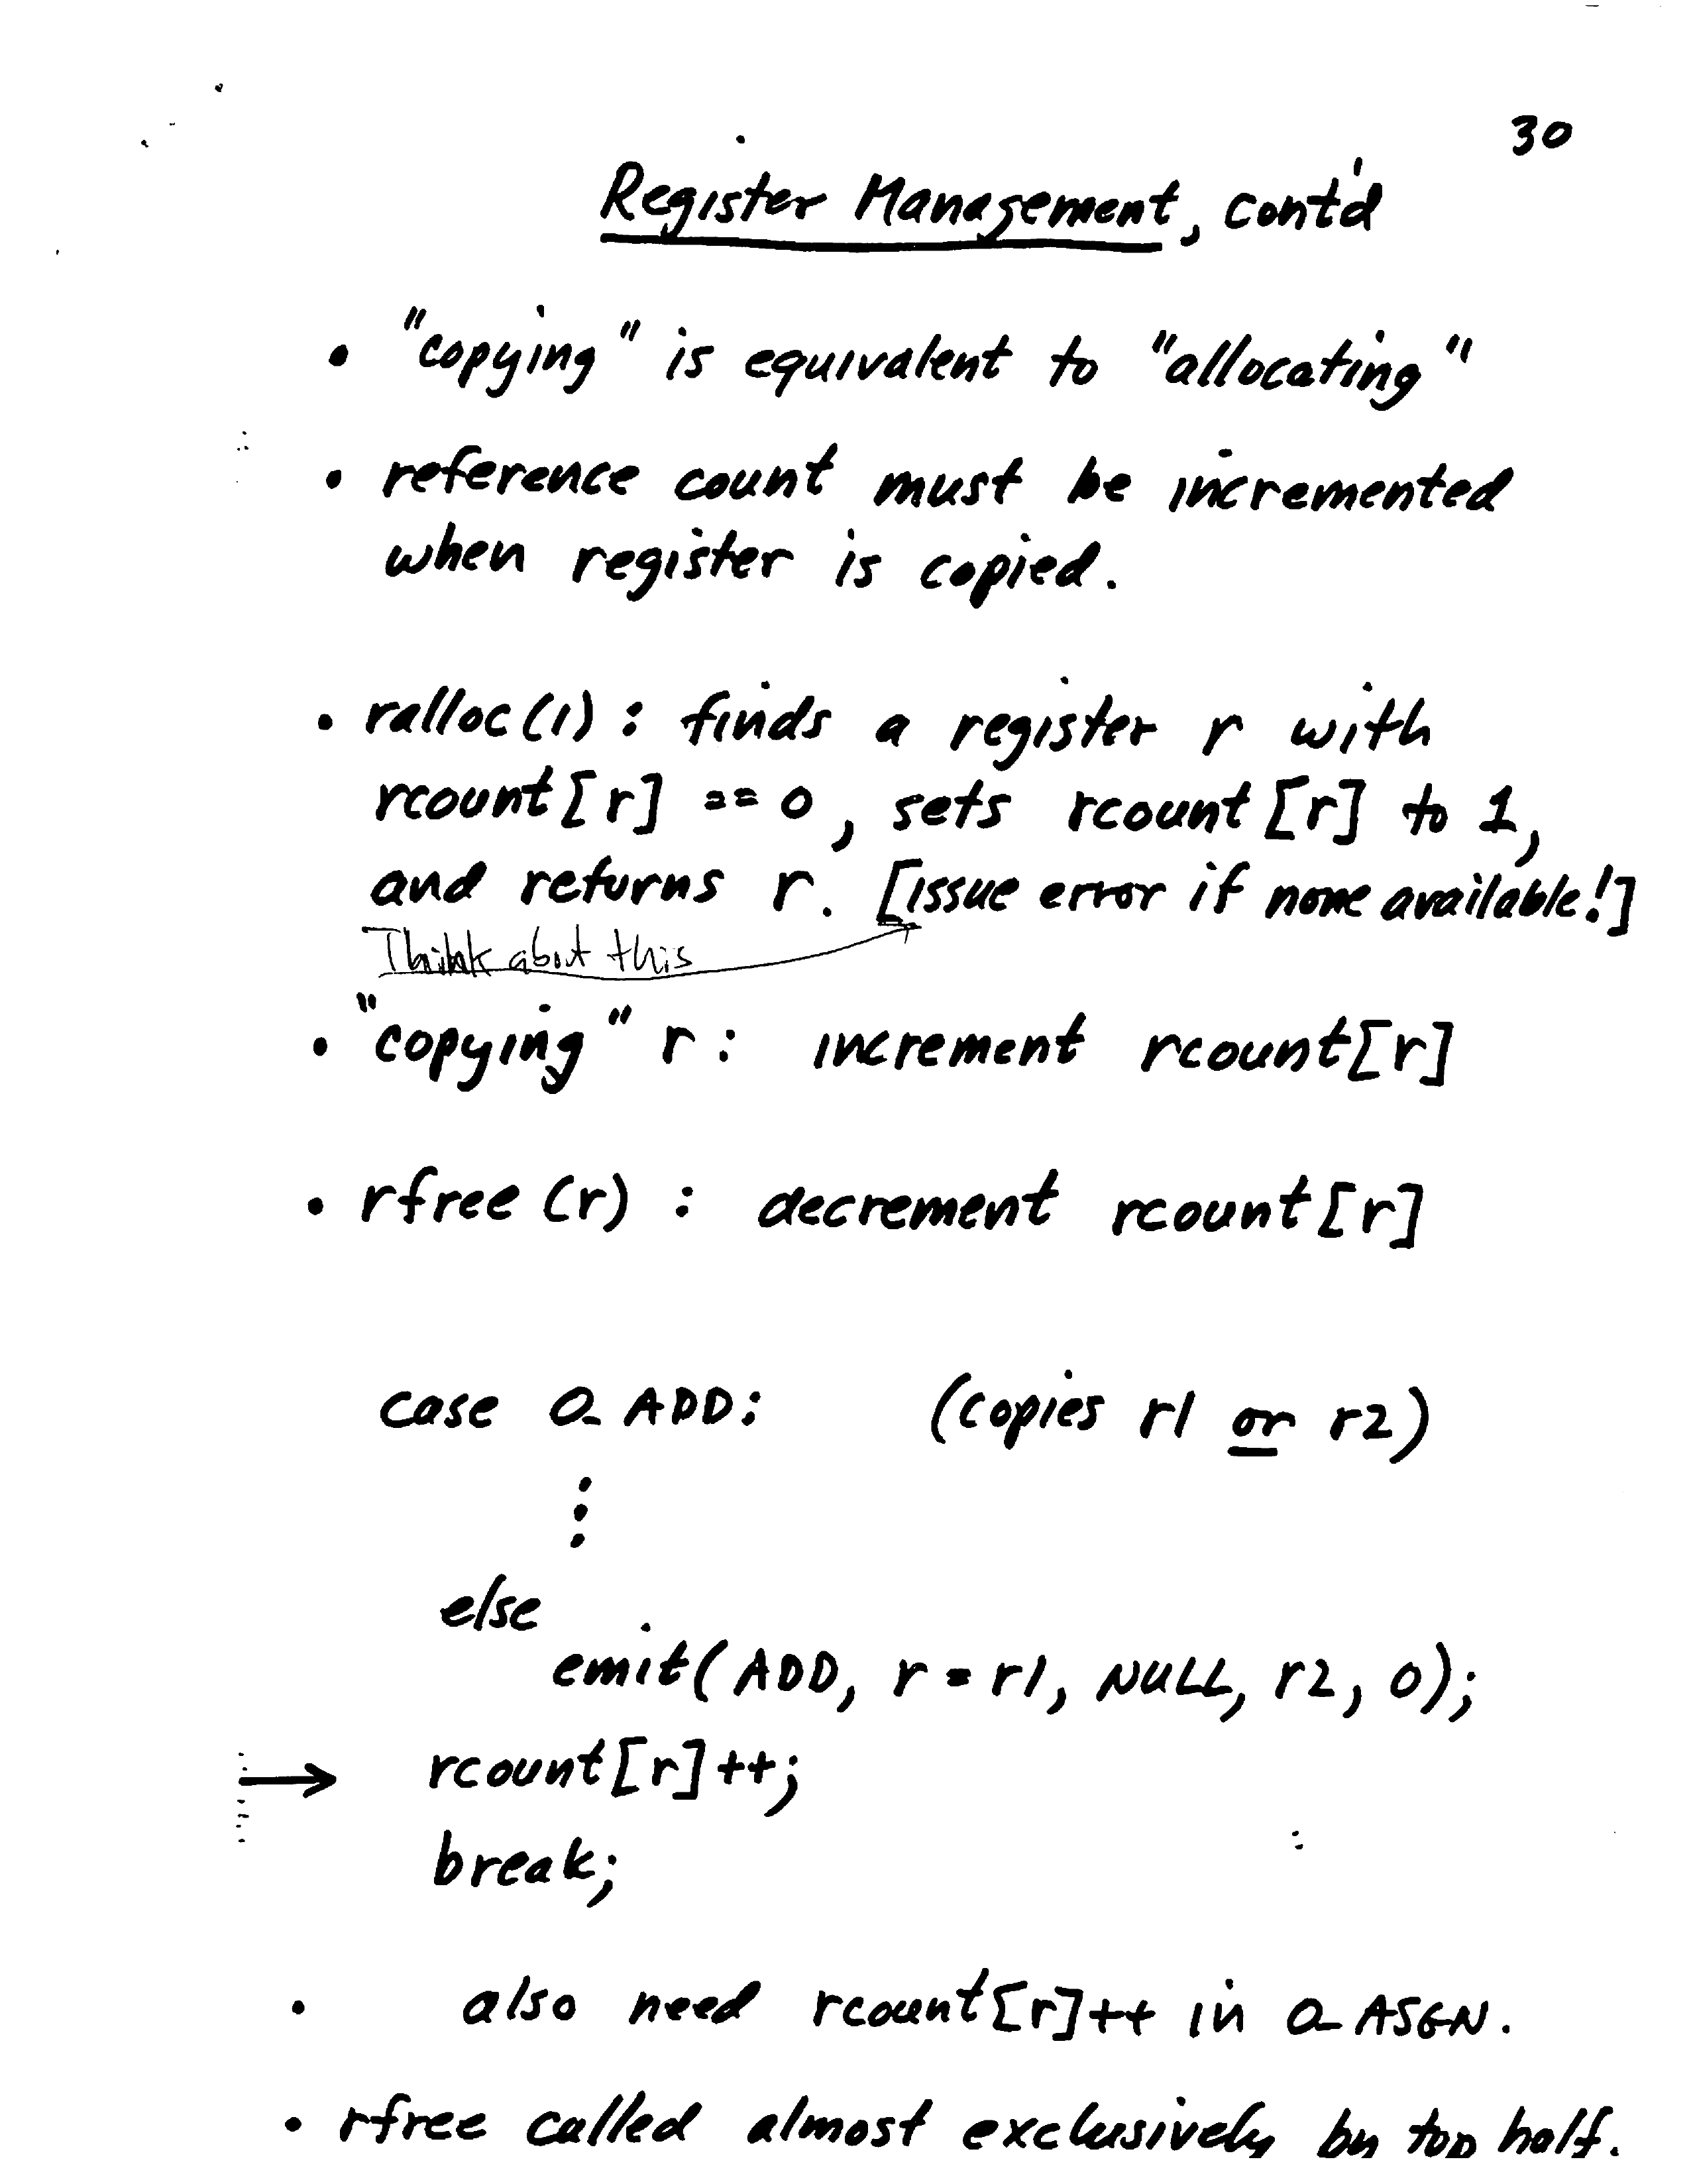 30
Register Management, cont'd
• "copying" is equivalent to "allocating"
• reference count must be incremented
when register is copied.
• ralloc(1) : finds a register r with
rcount[r] == 0, sets rcount[r] to 1,
and returns r. [issue error if none available!]
Think about this
• "copying" r : increment rcount[r]
• rfree(r) : decrement rcount[r]
case O_ADD: (copies r1 or r2)
⋮
else
emit(ADD, r=r1, NULL, r2, 0);
→ rcount[r]++;
break;
• also need rcount[r]++ in O_ASGN.
• rfree called almost exclusively by top half.